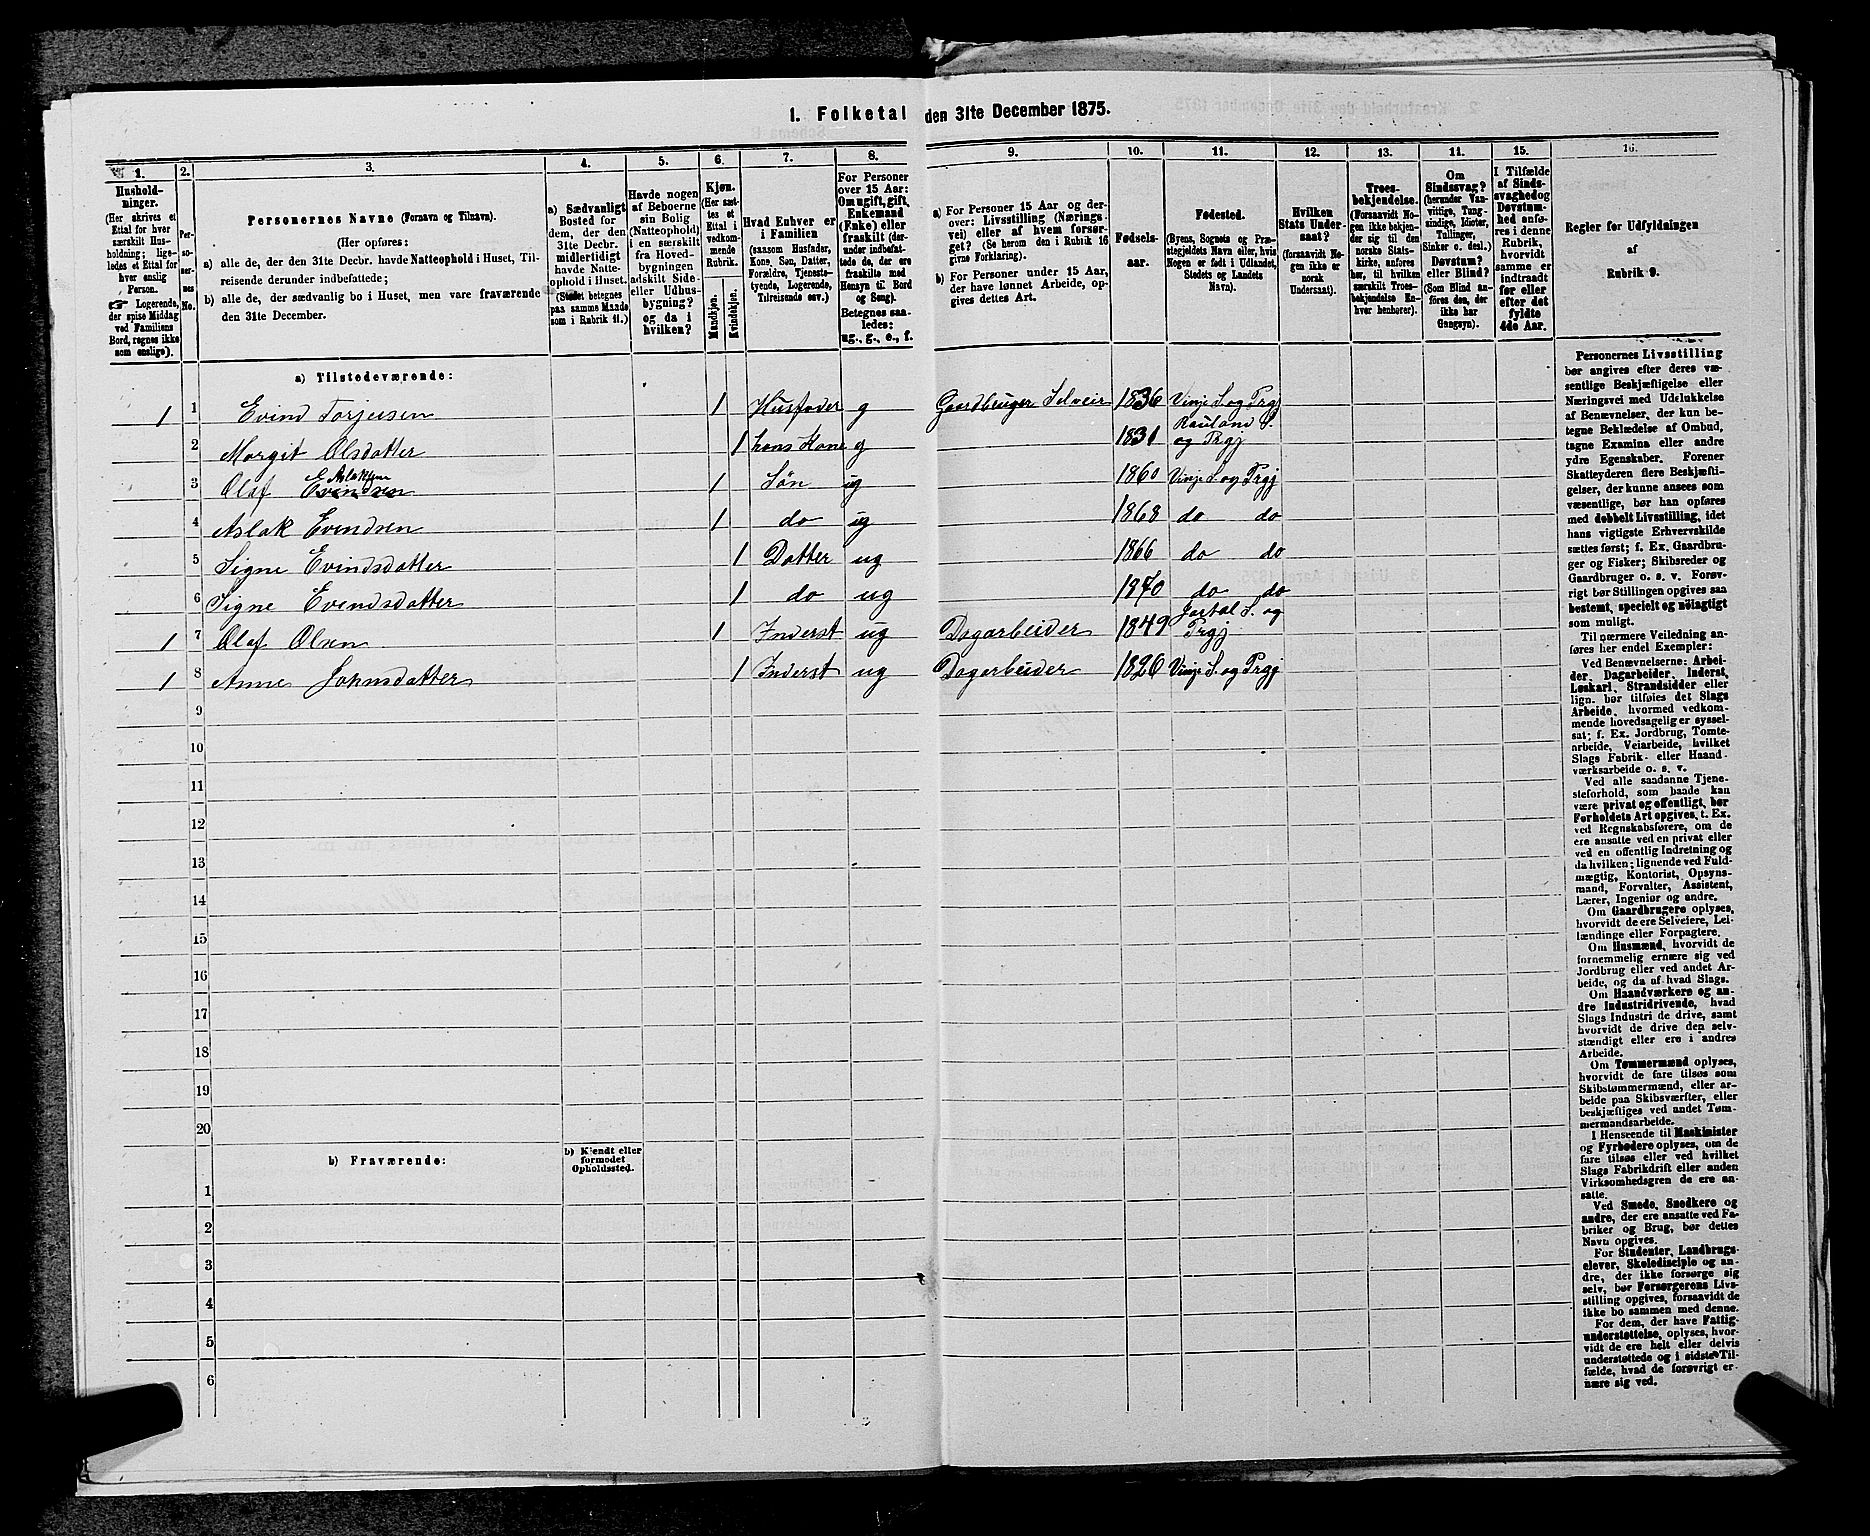 1. Folketal den 31te December 1875.
1.
2.
3.
4.
5.
6.
7.
8.
9.
10.
11.
12.
13.
14.
15.
16.
Hushold-
ninger.
(Her skrives et
Ettal for hver
særskilt Hus-
holdning; lige-
ledes et Ettal for
hver enslig
Person.
☞ Logerende,
der spise Middag
ved Familiens
Bord, regnes ikke
som enslige).
Per-
so-
ner-
nes
No.
Personernes Navne (Fornavn og Tilnavn).
(Her opføres:
a) alle de, der den 31te Decbr. havde Natteophold i Huset, Til-
reisende derunder indbefattede;
b) alle de, der sædvanlig bo i Huset, men vare fraværende
den 31te December.
a) Sædvanligt
Bosted for
dem, der den
31te Decbr.
midlertidigt
havde Natte-
ophold i Huset.
(Stedet betegnes
paa samme Maade
som i Rubrik 11.)
Havde nogen
af Beboerne
sin Bolig
(Natteophold)
i en særskilt
fra Hoved-
bygningen
adskilt Side-
eller Udhus-
bygning?
og da i
hvilken?
Kjøn.
(Her sæt-
tes et
Ettal i
vedkom-
mende
Rubrik.
Mandkjøn.
Kvindekjøn.
Hvad Enhver er
i Familien
(saasom Husfader,
Kone, Søn, Datter,
Forældre, Tjeneste-
tyende, Logerende,
Tilreisende osv.)
For Personer
over 15 Aar:
Om ugift, gift,
Enkemand
(Enke) eller
fraskilt (der-
under indbefat-
tede de, der ere
fraskilte med
Hensyn til Bord
og Seng).
Betegnes saa-
ledes:
ug., g., e., f.
a) For Personer 15 Aar og der-
over: Livsstilling (Nærings-
vei) eller af hvem forsør-
get? (Se herom den i Rubrik 16
givne Forklaring).
b) For Personer under 15 Aar,
der have lønnet Arbeide, op-
gives dettes Art.
Fødsels-
aar.
Fødested.
(Byens, Sognets og Præ-
stegjeldets Navn eller, hvis
Nogen er født i Udlandet,
Stedets og Landets
Navn).
Hvilken
Stats Under-
saat?
(forsaavidt No-
gen ikke er
norsk
Undersaat).
Troes-
bekjendelse.
(Forsaavidt No-
gen ikke bekjen-
der sig til den
norske Stats-
kirke, anføres
her, til hvilken
særskilt Troes-
bekjendelse En-
hver henhører).
Om
Sindssvag?
(herunder Van-
vittige, Tung-
sindige, Idioter,
Tullinger,
Sinker o. desl.)
Døvstum?
eller Blind?
(Som Blind an-
føres den, der
ikke har
Gangsyn).
I Tilfælde
af Sinds-
svaghed og
Døvstum-
hed anfø-
res i denne
Rubrik,
hvorvidt
samme er
indtraadt
før eller
efter det
fyldte
4de Aar.
Regler for Udfyldningen
af
Rubrik 9.
a) Tilstedeværende:
1 1 Evind Torjersen 1 Husfader g Gaardbruger Selveir 1836 Vinje S. og Prgj
2 Margit Olsdatter 1 hans Kone g 1831 Rauland S.
og Prgj
3 Olaf Evindsen Aslaksen 1 Søn ug 1860 Vinje S. og Prgj
4 Aslak Evendsen 1 do ug 1868 do do
5 Signe Evindsdatter 1 Datter ug 1866 do do
6 Signe Evendsdatter 1 do ug 1870 do do
1 7 Olaf Olsen 1 Inderst ug Dagarbeider 1849 S. og
Prgj
1 8 Anne Johnsdatter 1 Inderst ug Dagarbeider 1826 Vinje S. og Prgj
9
10
11
12
13
14
15
16
17
18
19
20
b) Fraværende:
b) Kjendt eller
formodet
Opholdssted.
1
2
3
4
5
6
Personernes Livsstilling
bør angives efter deres væ-
sentlige Beskjæftigelse eller
Næringsvei med Udelukkelse
af Benævnelser, der kun be-
tegne Beklædelse af Ombud,
tagne Examina eller andre
ydre Egenskaber. Forener
Skatteyderen flere Beskjæfti-
gelser, der kunne ansees som
væsentlige, bør han opføres
med dobbelt Livsstilling, idet
hans vigtigste Erhvervskilde
sættes først; f. Ex. Gaardbru-
ger og Fisker; Skibsreder og
Gaardbruger o. s. v. Forøv-
rigt bør Stillingen opgives saa
bestemt, specielt og nøiagtigt
som muligt.
Til nærmere Veiledning an-
føres her endel Exempler:
Ved Benævnelserne: Arbei-
der, Dagarbeider, Inderst,
Løskarl, Strandsidder eller
lign. bør tilføies det Slags
Arbeide, hvormed vedkom-
mende hovedsagelig er syssel-
sat; f. Ex. Jordbrug, Tomte-
arbeide, Veiarbeide, hvilket
Slags Fabrik- eller Haand-
værksarbeide o. s. v.
Ved alle saadanne Tjene-
steforhold, som baade kan
være privat og offentligt, bør
Forholdets Art opgives, t. Ex.
ved Regnskabsførere, om de
ere ansatte ved en privat eller
ved en offentlig Indretning og
da hvilken; lignende ved Fuld-
mægtig, Kontorist, Opsyns-
mand, Forvalter, Assistent,
Lærer, Ingeniør og andre.
Om Gaardbrugere oplyses,
hvorvidt de ere Selveiere, Lei-
lændinge eller Forpagtere.
Om Husmænd, hvorvidt de
fornemmelig ernære sig ved
Jordbrug eller ved andet Ar-
beide, og da af hvad Slags.
Om Haandværkere og an-
dre Industridrivende, hvad
Slags Industri de drive, samt
hvorvidt de drive den selv-
stændigt eller ere i andres
Arbeide.
Om Tømmermænd oplyses,
hvorvidt de fare tilsøs som
Skibstømmermænd, eller ar-
beide paa Skibsværfter, eller
beskjæftiges ved andet Tøm-
mermandsarbeide.
I Henseende til Maskinister
og Fyrbødere oplyses, om de
fare tilsøs eller ved hvilket
Slags Fabrikdrift eller anden
Virksomhedsgren de ere an-
satte.
Ved Smede, Snedkere og
andre, der ere ansatte ved Fa-
briker og Brug, bør dettes
Navn opgives.
For Studenter, Landbrugs-
elever, Skoledisciple og an-
dre, der ikke forsørge sig
selv, bør Forsørgerens Livs-
stilling opgives, forsaavidt de
ikke bo sammen med denne.
For dem, der have Fattig-
understøttelse, oplyses, hvor-
vidt de ere helt eller delvis
understøttede og i sidste Til-
fælde, hvad de forøvrigt er-
nære sig ved.